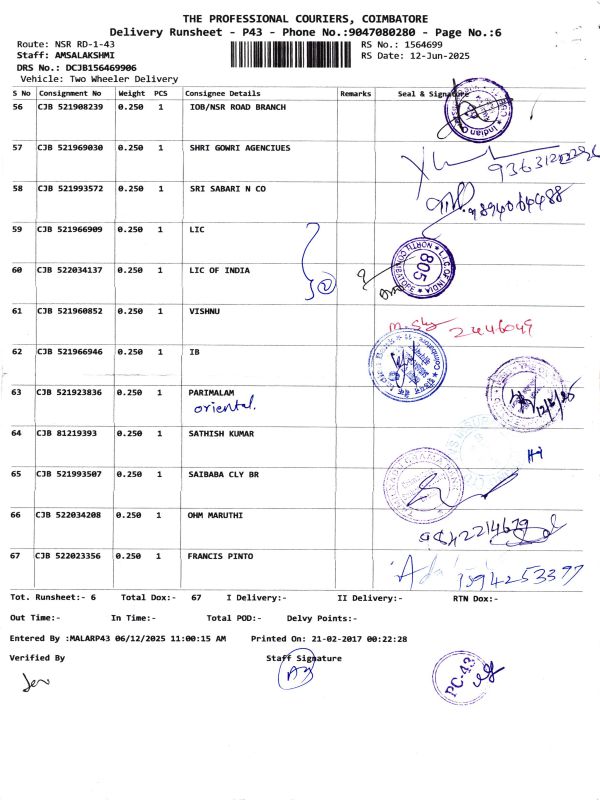 THE PROFESSIONAL COURIERS, COIMBATORE
Delivery Runsheet - P43 - Phone No.:9047080280 - Page No.:6
Route: NSR RD-1-43
RS No.: 1564699
Staff: AMSALAKSHMI
RS Date: 12-Jun-2025
DRS No.: DCJB156469906
Vehicle: Two Wheeler Delivery
S No Consignment No Weight PCS Consignee Details Remarks Seal & Signature
56 CJB 521908239 0.250 1 IOB/NSR ROAD BRANCH
57 CJB 521969030 0.250 1 SHRI GOWRI AGENCIUES
58 CJB 521993572 0.250 1 SRI SABARI N CO
59 CJB 521966909 0.250 1 LIC
60 CJB 522034137 0.250 1 LIC OF INDIA
L.I.C. OF INDIA
805
61 CJB 521960852 0.250 1 VISHNU
2446049
62 CJB 521966946 0.250 1 IB
63 CJB 521923836 0.250 1 PARIMALAM
oriental.
12/6/25
64 CJB 81219393 0.250 1 SATHISH KUMAR
65 CJB 521993507 0.250 1 SAIBABA CLY BR
66 CJB 522034208 0.250 1 OHM MARUTHI
67 CJB 522023356 0.250 1 FRANCIS PINTO
Tot. Runsheet:- 6 Total Dox:- 67 I Delivery:- II Delivery:- RTN Dox:-
Out Time:- In Time:- Total POD:- Delvy Points:-
Entered By :MALARP43 06/12/2025 11:00:15 AM Printed On: 21-02-2017 00:22:28
Verified By Staff Signature
PC-43